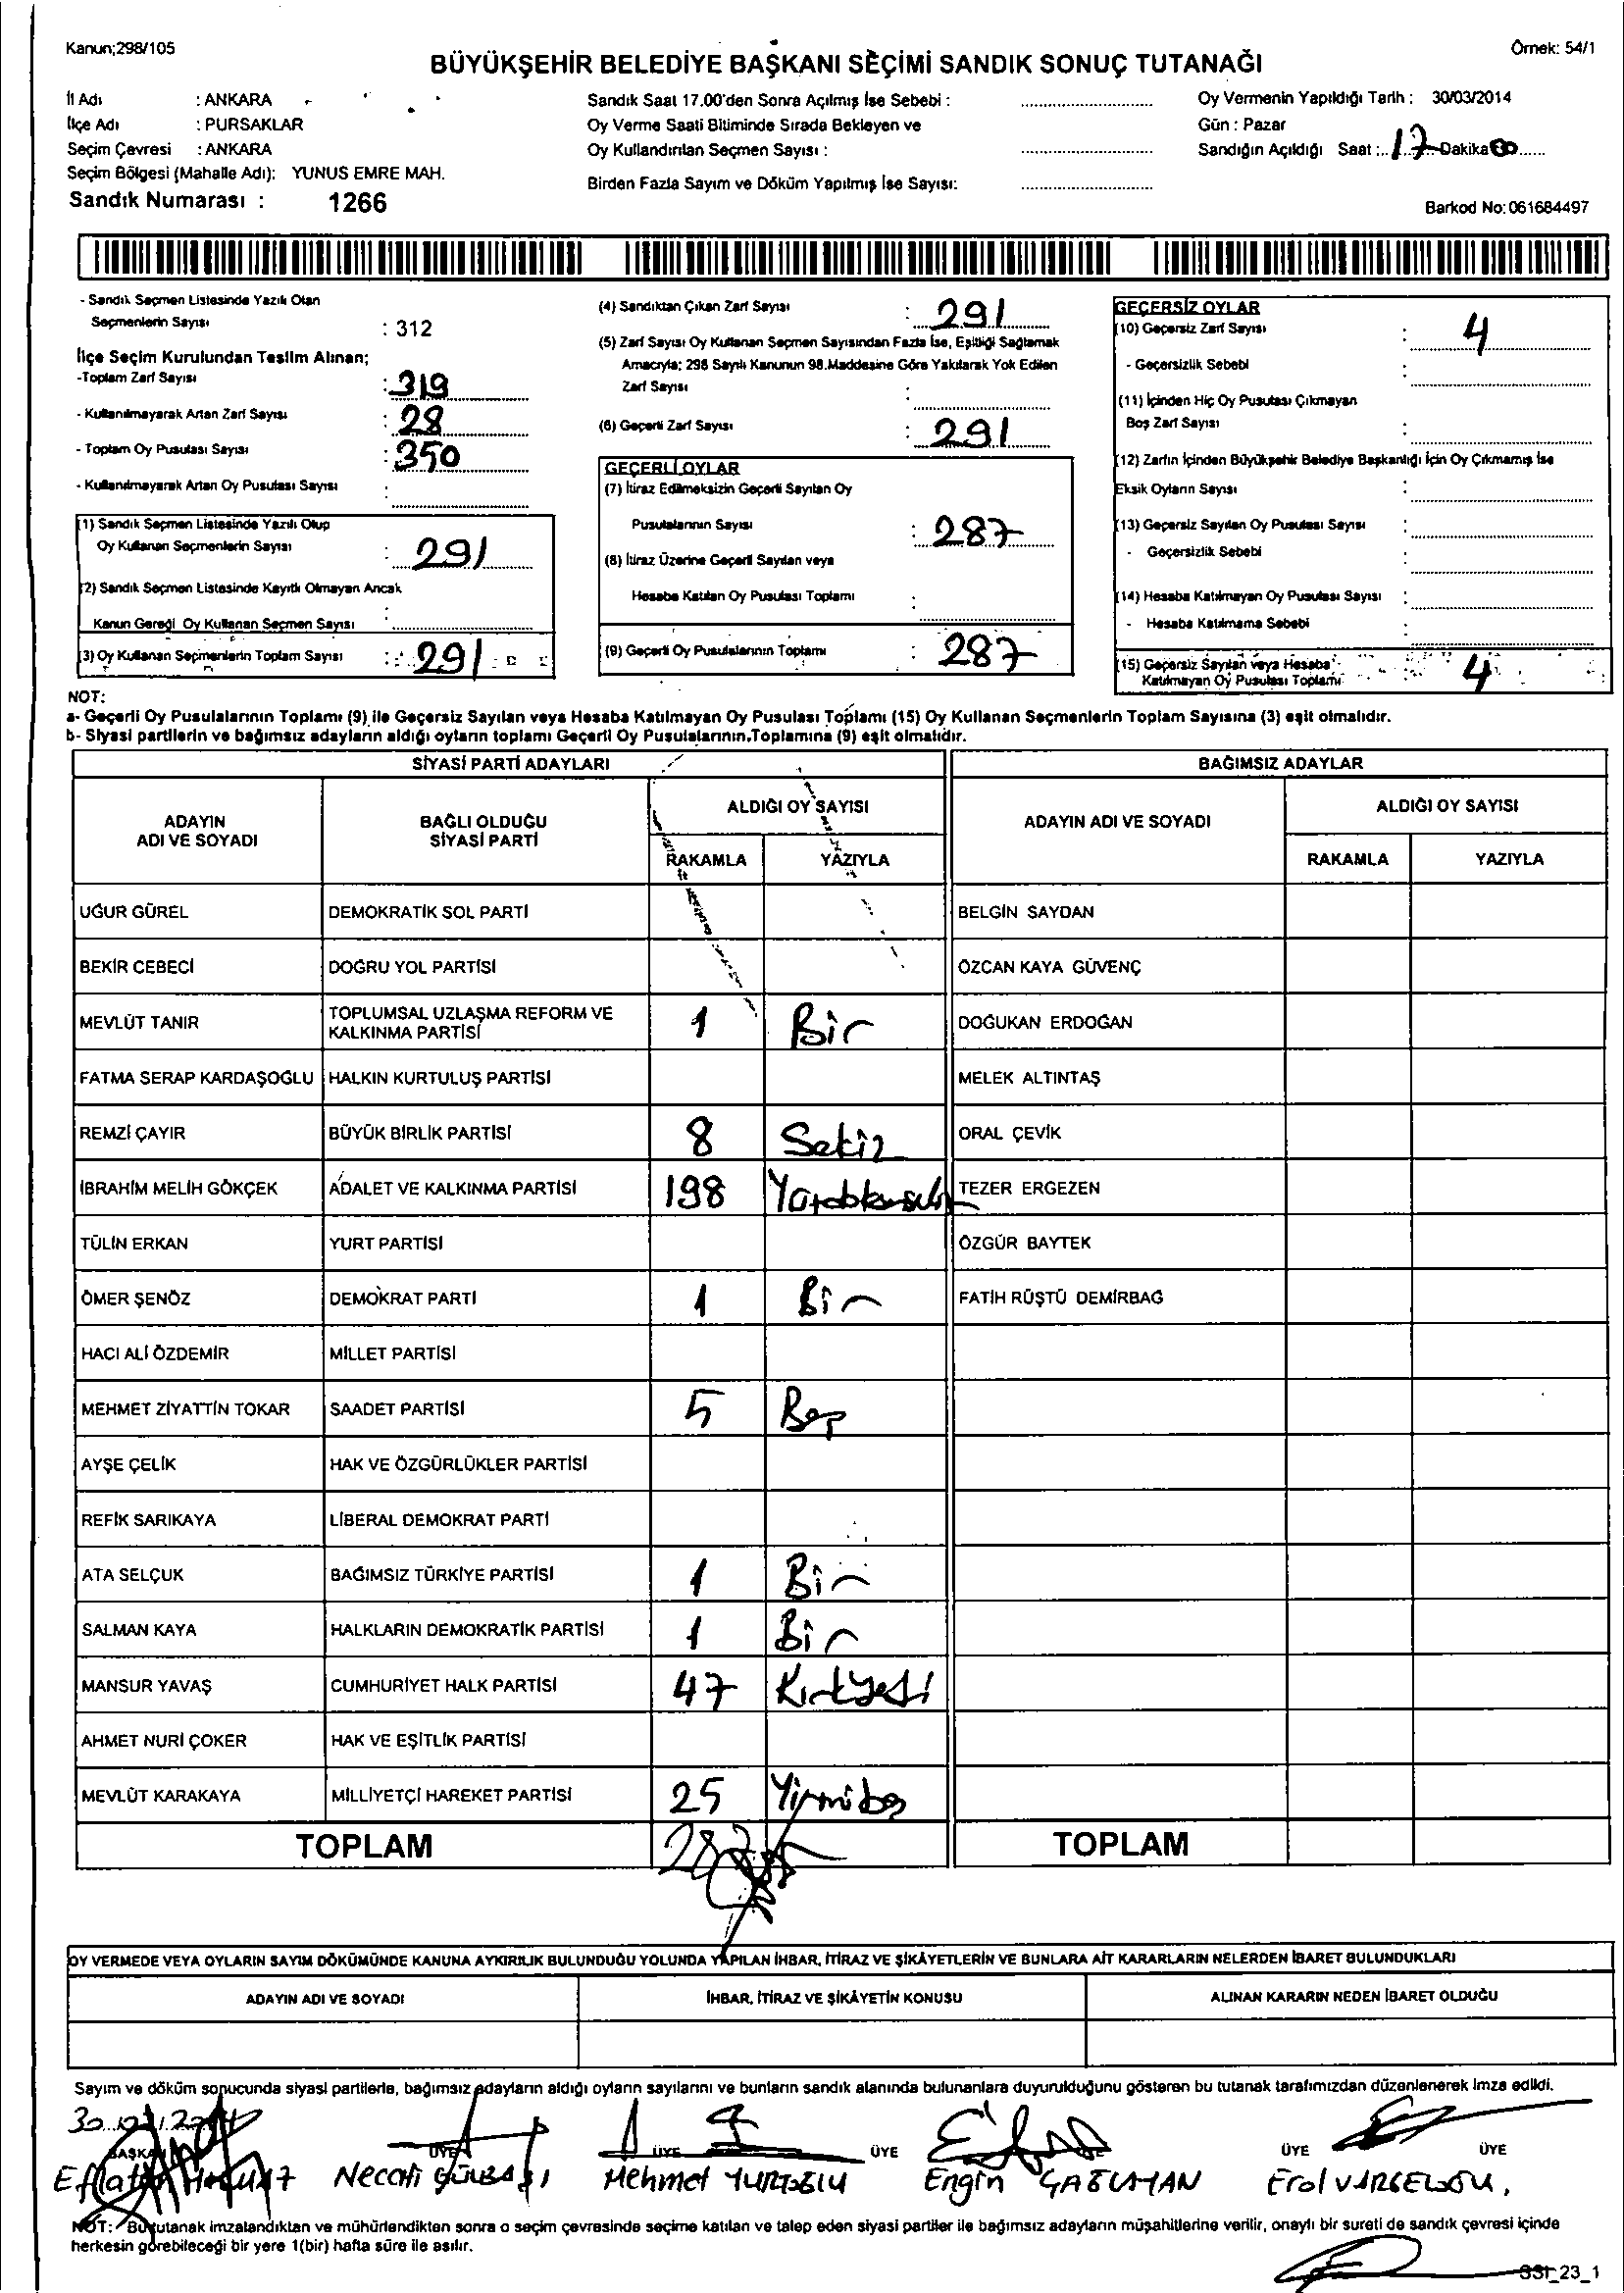 Kanun;298/105
Örnek: 54/1
BÜYÜKŞEHİR BELEDİYE BAŞKANI SEÇİMİ SANDIK SONUÇ TUTANAĞI
İl Adı : ANKARA
İlçe Adı : PURSAKLAR
Seçim Çevresi : ANKARA
Seçim Bölgesi (Mahalle Adı): YUNUS EMRE MAH.
Sandık Numarası : 1266
Sandık Saat 17.00'den Sonra Açılmış İse Sebebi :
Oy Verme Saati Bitiminde Sırada Bekleyen ve
Oy Kullandırılan Seçmen Sayısı :
Birden Fazla Sayım ve Döküm Yapılmış İse Sayısı:
Oy Vermenin Yapıldığı Tarih : 30/03/2014
Gün : Pazar
Sandığın Açıldığı Saat : 17 Dakika
Barkod No:061684497
- Sandık Seçmen Listesinde Yazılı Olan
Seçmenlerin Sayısı : 312
İlçe Seçim Kurulundan Teslim Alınan;
-Toplam Zarf Sayısı : 319
- Kullanılmayarak Artan Zarf Sayısı : 28
- Toplam Oy Pusulası Sayısı : 350
- Kullanılmayarak Artan Oy Pusulası Sayısı :
(1) Sandık Seçmen Listesinde Yazılı Olup
Oy Kullanan Seçmenlerin Sayısı : 291
(2) Sandık Seçmen Listesinde Kayıtlı Olmayan Ancak
Kanun Gereği Oy Kullanan Seçmen Sayısı :
(3) Oy Kullanan Seçmenlerin Toplam Sayısı : 291
(4) Sandıktan Çıkan Zarf Sayısı : 291
(5) Zarf Sayısı Oy Kullanan Seçmen Sayısından Fazla İse, Eşitliği Sağlamak
Amacıyla; 298 Sayılı Kanunun 98.Maddesine Göre Yakılarak Yok Edilen
Zarf Sayısı :
(6) Geçerli Zarf Sayısı : 291
GEÇERLİ OYLAR
(7) İtiraz Edilmeksizin Geçerli Sayılan Oy
Pusulalarının Sayısı : 287
(8) İtiraz Üzerine Geçerli Sayılan veya
Hesaba Katılan Oy Pusulası Toplamı :
(9) Geçerli Oy Pusulalarının Toplamı : 287
GEÇERSİZ OYLAR
(10) Geçersiz Zarf Sayısı : 4
- Geçersizlik Sebebi :
(11) İçinden Hiç Oy Pusulası Çıkmayan
Boş Zarf Sayısı :
(12) Zarfın İçinden Büyükşehir Belediye Başkanlığı İçin Oy Çıkmamış İse
Eksik Oyların Sayısı :
(13) Geçersiz Sayılan Oy Pusulası Sayısı :
- Geçersizlik Sebebi :
(14) Hesaba Katılmayan Oy Pusulası Sayısı :
- Hesaba Katılmama Sebebi :
(15) Geçersiz Sayılan veya Hesaba
Katılmayan Oy Pusulası Toplamı : 4
NOT:
a- Geçerli Oy Pusulalarının Toplamı (9) ile Geçersiz Sayılan veya Hesaba Katılmayan Oy Pusulası Toplamı (15) Oy Kullanan Seçmenlerin Toplam Sayısına (3) eşit olmalıdır.
b- Siyasi partilerin ve bağımsız adayların aldığı oyların toplamı Geçerli Oy Pusulalarının Toplamına (9) eşit olmalıdır.
SİYASİ PARTİ ADAYLARI BAĞIMSIZ ADAYLAR
ADAYIN ADI VE SOYADI BAĞLI OLDUĞU SİYASİ PARTİ ALDIĞI OY SAYISI ADAYIN ADI VE SOYADI ALDIĞI OY SAYISI
RAKAMLA YAZIYLA RAKAMLA YAZIYLA
UĞUR GÜREL DEMOKRATİK SOL PARTİ BELGİN SAYDAN
BEKİR CEBECİ DOĞRU YOL PARTİSİ ÖZCAN KAYA GÜVENÇ
MEVLÜT TANIR TOPLUMSAL UZLAŞMA REFORM VE KALKINMA PARTİSİ 1 Bir DOĞUKAN ERDOĞAN
FATMA SERAP KARDAŞOĞLU HALKIN KURTULUŞ PARTİSİ MELEK ALTINTAŞ
REMZİ ÇAYIR BÜYÜK BİRLİK PARTİSİ 8 Sekiz ORAL ÇEVİK
İBRAHİM MELİH GÖKÇEK ADALET VE KALKINMA PARTİSİ 198 TEZER ERGEZEN
TÜLİN ERKAN YURT PARTİSİ ÖZGÜR BAYTEK
ÖMER ŞENÖZ DEMOKRAT PARTİ 1 Bir FATİH RÜŞTÜ DEMİRBAĞ
HACI ALİ ÖZDEMİR MİLLET PARTİSİ
MEHMET ZİYATTİN TOKAR SAADET PARTİSİ 5 Beş
AYŞE ÇELİK HAK VE ÖZGÜRLÜKLER PARTİSİ
REFİK SARIKAYA LİBERAL DEMOKRAT PARTİ
ATA SELÇUK BAĞIMSIZ TÜRKİYE PARTİSİ 1 Bir
SALMAN KAYA HALKLARIN DEMOKRATİK PARTİSİ 1 Bir
MANSUR YAVAŞ CUMHURİYET HALK PARTİSİ 47 Kırkyedi
AHMET NURİ ÇOKER HAK VE EŞİTLİK PARTİSİ
MEVLÜT KARAKAYA MİLLİYETÇİ HAREKET PARTİSİ 25 Yirmibeş
TOPLAM 287 TOPLAM
OY VERMEDE VEYA OYLARIN SAYIM DÖKÜMÜNDE KANUNA AYKIRILIK BULUNDUĞU YOLUNDA YAPILAN İHBAR, İTİRAZ VE ŞİKÂYETLERİN VE BUNLARA AİT KARARLARIN NELERDEN İBARET BULUNDUKLARI
ADAYIN ADI VE SOYADI İHBAR, İTİRAZ VE ŞİKÂYETİN KONUSU ALINAN KARARIN NEDEN İBARET OLDUĞU
Sayım ve döküm sonucunda siyasi partilerle, bağımsız adayların aldığı oyların sayılarını ve bunların sandık alanında bulunanlara duyurulduğunu gösteren bu tutanak tarafımızdan düzenlenerek imza edildi.
BAŞKAN ÜYE ÜYE ÜYE ÜYE ÜYE
Necati Mehmet Engin Erol
NOT: Bu tutanak imzalandıktan ve mühürlendikten sonra o seçim çevresinde seçime katılan ve talep eden siyasi partiler ile bağımsız adayların müşahitlerine verilir, onaylı bir sureti de sandık çevresi içinde
herkesin görebileceği bir yere 1(bir) hafta süre ile asılır.
SSI_23_1